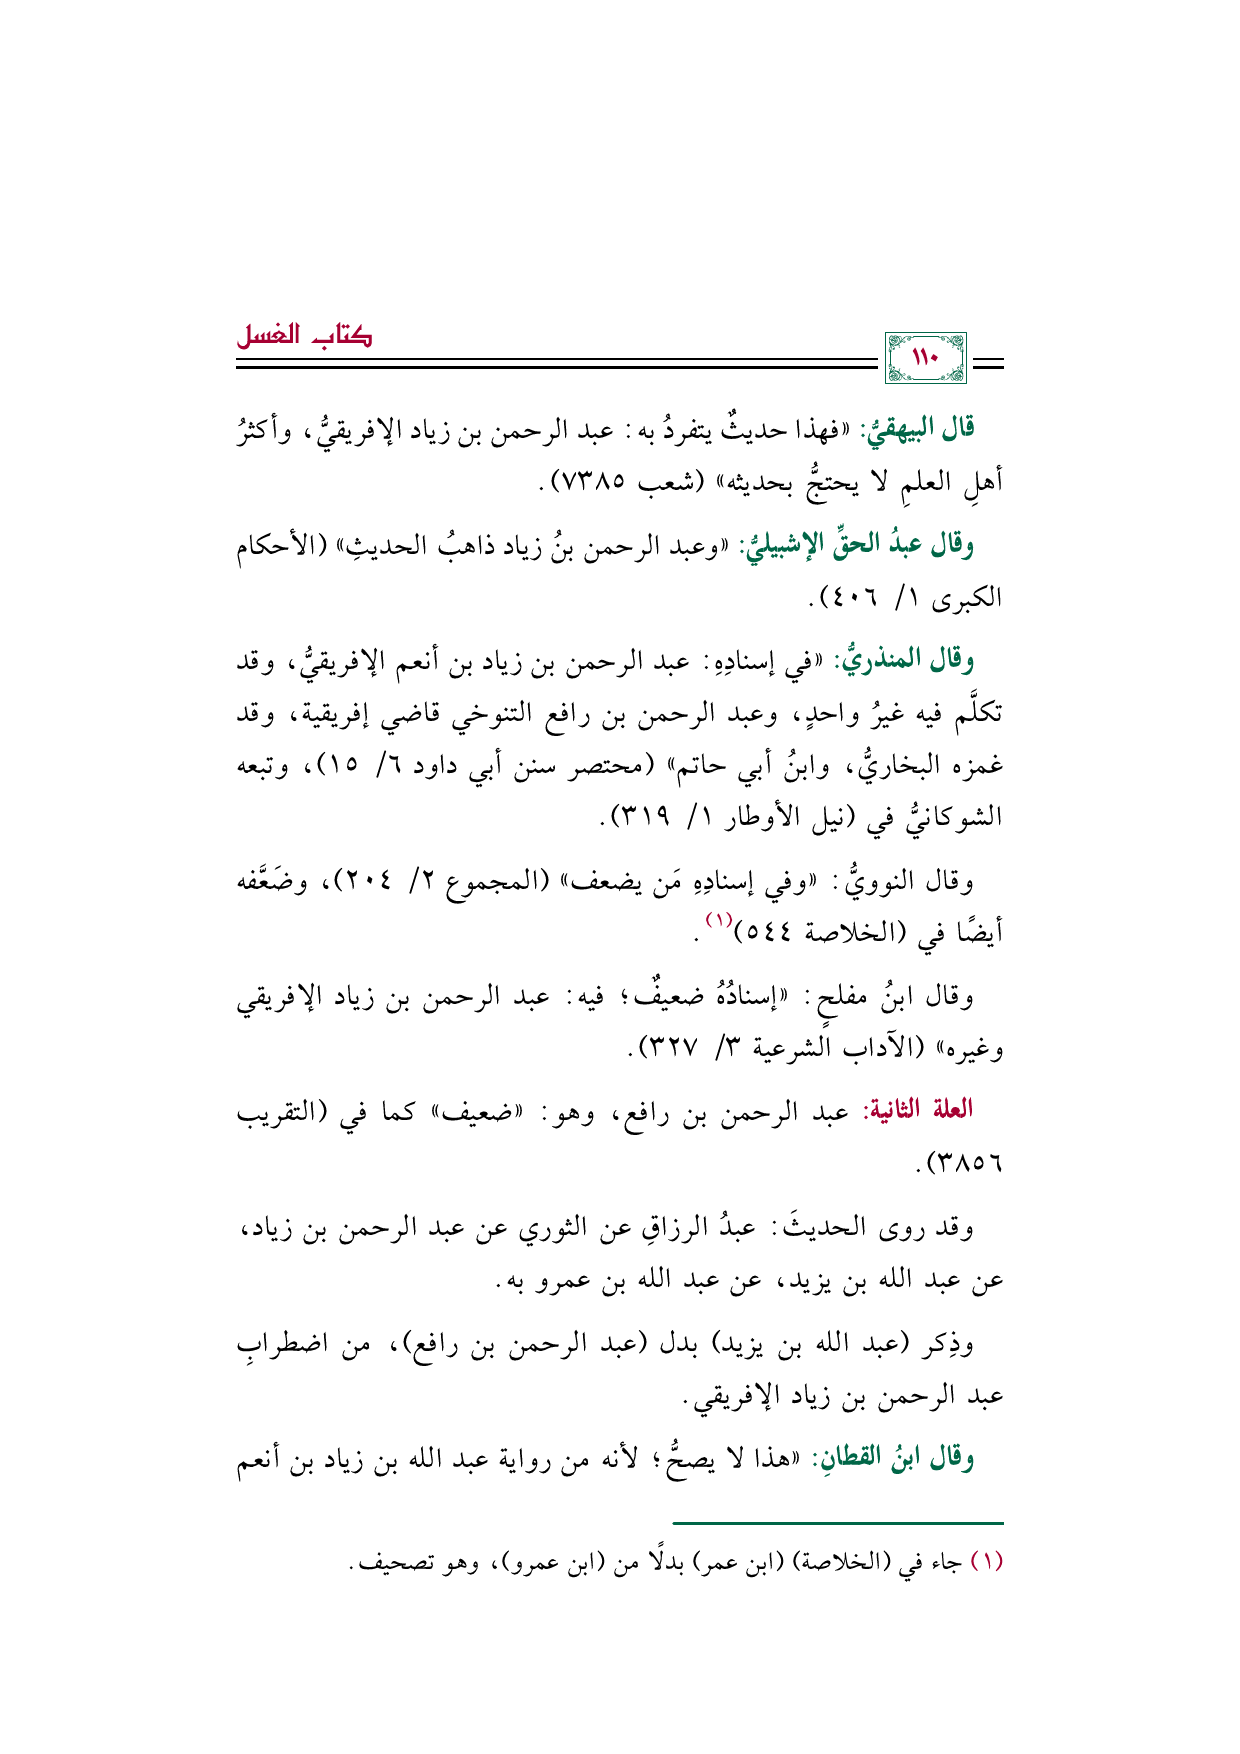 كتاب الغسل
١١٠
قال البيهقيُّ: «فهذا حديثٌ يتفردُ به: عبد الرحمن بن زياد الإفريقيُّ، وأكثرُ
أهلِ العلمِ لا يحتجُّ بحديثه» (شعب ٧٣٨٥).
وقال عبدُ الحقِّ الإشبيليُّ: «وعبد الرحمن بنُ زياد ذاهبُ الحديثِ» (الأحكام
الكبرى ١/ ٤٠٦).
وقال المنذريُّ: «في إسنادِهِ: عبد الرحمن بن زياد بن أنعم الإفريقيُّ، وقد
تكلَّم فيه غيرُ واحدٍ، وعبد الرحمن بن رافع التنوخي قاضي إفريقية، وقد
غمزه البخاريُّ، وابنُ أبي حاتم» (محتصر سنن أبي داود ٦/ ١٥)، وتبعه
الشوكانيُّ في (نيل الأوطار ١/ ٣١٩).
وقال النوويُّ: «وفي إسنادِهِ مَن يضعف» (المجموع ٢/ ٢٠٤)، وضَعَّفه
أيضًا في (الخلاصة ٥٤٤)(١).
وقال ابنُ مفلحٍ: «إسنادُهُ ضعيفٌ؛ فيه: عبد الرحمن بن زياد الإفريقي
وغيره» (الآداب الشرعية ٣/ ٣٢٧).
العلة الثانية: عبد الرحمن بن رافع، وهو: «ضعيف» كما في (التقريب
٣٨٥٦).
وقد روى الحديثَ: عبدُ الرزاقِ عن الثوري عن عبد الرحمن بن زياد،
عن عبد الله بن يزيد، عن عبد الله بن عمرو به.
وذِكر (عبد الله بن يزيد) بدل (عبد الرحمن بن رافع)، من اضطرابِ
عبد الرحمن بن زياد الإفريقي.
وقال ابنُ القطانِ: «هذا لا يصحُّ؛ لأنه من رواية عبد الله بن زياد بن أنعم
(١) جاء في (الخلاصة) (ابن عمر) بدلًا من (ابن عمرو)، وهو تصحيف.